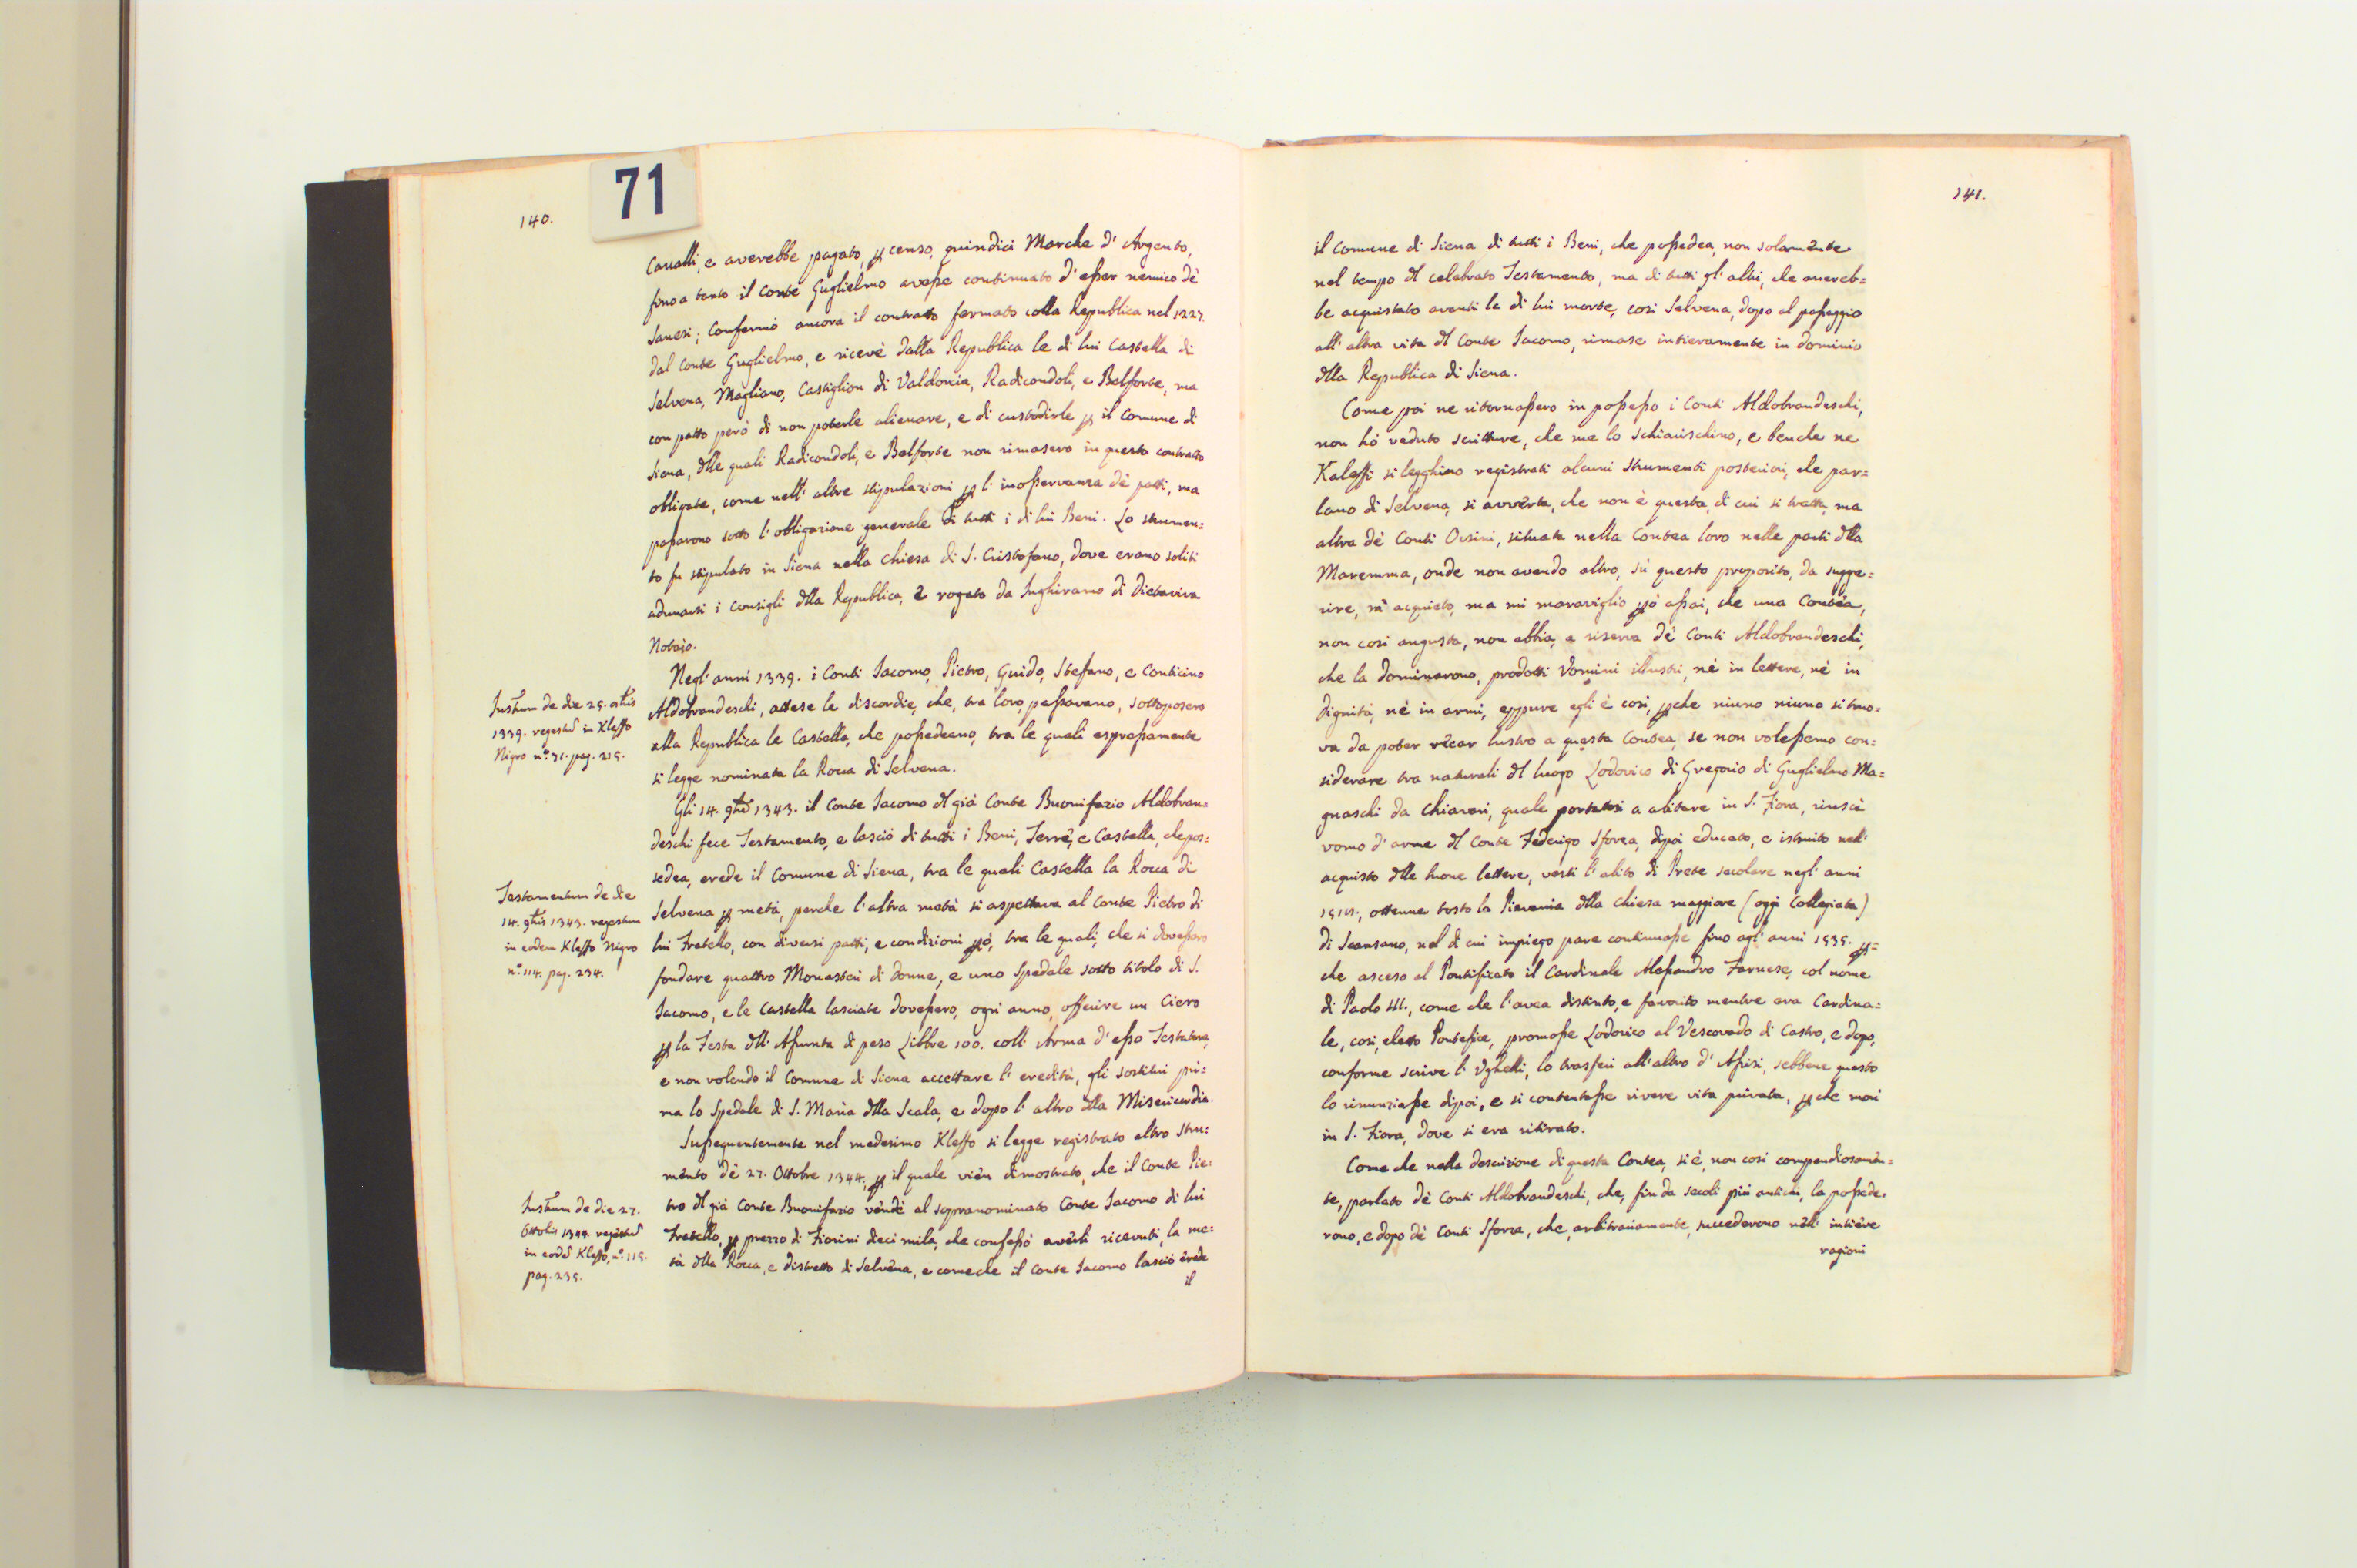 140.
71
Cavalli, e averebbe pagato, ꝑ censo, quindici Marche d' Argento,
fino a tanto il Conte Guglielmo avesse continuato d' esser nemico dè
Sanesi; Confermò ancora il contratto fermato colla Republica nel 1227.
dal Conte Guglielmo, e ricevè dalla Republica le di lui Castella di
Selvena, Magliano, Castiglion di Valdorcia, Radicondoli, e Belforte, ma
con patto però di non poterle alienare, e di custodirle ꝑ il Comune di
Siena, dlle quali Radicondoli, e Belforte non rimasero in questo contratto
obligate, come nell' altre stipulazioni ꝑ l' inosservanza dè patti, ma
passarono sotto l' obligazione generale di tutti i di lui Beni. Lo strumen=
to fu stipulato in Siena nella Chiesa di S. Cristofano, dove erano soliti
adunarsi i Consigli dlla Republica, e rogato da Inghiramo di Dietaviva
Notajo.
Negl' anni 1339. i Conti Jacomo, Pietro, Guido, Stefano, e Conticino
Aldobrandeschi, attese le discordie, che, tra loro, passavano, sottoposero
alla Republica le Castella, che possedeano, tra le quali espressamente
si legge nominata la Rocca di Selvena.
Instum de die 25.
1339. in Kleffo
Nigro nº. 71. pag. 215.
Gli 14. 9bre 1343. il Conte Jacomo dl già Conte Buonifazio Aldobran=
deschi fece Testamento, e lasciò di tutti i Beni, Terre, e Castella, che pos=
sedea, erede il Comune di Siena, tra le quali Castella la Rocca di
Selvena ꝑ metà, perche l' altra metà si aspettava al Conte Pietro di
lui Fratello, con diversi patti, e condizioni ꝑò, tra le quali, che si dovessero
fondare quattro Monasteri di donne, e uno Spedale sotto titolo di S.
Jacomo, e le Castella lasciate dovessero, ogni anno, offerire un Ciero
ꝑ la Festa dll' Assunta di peso Libbre 100. coll' Arma d' esso Testatore,
e non volendo il Comune di Siena accettare l' eredità, gli sostituì pri=
ma lo Spedale di S. Maria dlla Scala, e dopo l' altro dlla Misericordia.
Testamentum de die
14. 9bris 1343. regestum
in eodem Kleffo Nigro
nº. 114. pag. 234.
Sussequentemente nel medesimo Kleffo si legge registrato altro stru=
mento dè 27. Ottobre 1344., ꝑ il quale vien dimostrato, che il Conte Pie=
tro dl già Conte Buonifazio vendè al sopranominato Conte Jacomo di lui
Fratello, ꝑ prezzo di Fiorini dieci mila, che confessò averli ricevuti, la me=
tà dlla Rocca, e distretto di Selvena, e comeche il Conte Jacomo lasciò erede
il
Instum de die 27.
Ottobis 1344.
in eod Kleffo, nº. 115.
pag. 235.
141.
il Comune di Siena di tutti i Beni, che possedea, non solamente
nel tempo dl celebrato Testamento, ma di tutti gl' altri, che avereb=
be acquistato avanti la di lui morte, così Selvena, dopo al passaggio
all' altra vita dl Conte Jacomo, rimase intieramente in dominio
dlla Republica di Siena.
Come poi ne ritornassero in possesso i Conti Aldobrandeschi,
non hò veduto scritture, che me lo schiarischino, e benche ne
Kaleffi si legghino registrati alcuni strumenti posteriori, che par=
lano di Selvena, si avverta, che non è questa, di cui si tratta, ma
altra dè Conti Orsini, situata nella Contea loro nelle parti dlla
Maremma, onde non avendo altro, sù questo proposito, da sugge=
rire, m' acquieto, ma mi maraviglio ꝑò assai, che una Contea,
non così angusta, non abbia, a riserva dè Conti Aldobrandeschi,
che la dominarono, prodotti Vomini illustri, nè in lettere, nè in
dignità, nè in armi, eppure egli è così, ꝑche niuno niuno si tro=
va da poter recar lustro a questa Contea, se non volessemo con=
siderare tra naturali dl luogo Lodovico di Gregorio di Guglielmo Ma=
gnaschi da Chiavari, quale portatosi a abitare in S. Fiora, riuscì
vomo d' arme dl Conte Federigo Sforza, dipoi educato, e istruito nell'
acquisto dlle buone lettere, vestì l' abito di Prete secolare negl' anni
ottenne tosto la Pievania dlla Chiesa maggiore (oggi Collegiata)
di Scansano, nel di cui impiego pare continuasse fino agl' anni 1535. ꝑ=
che asceso al Pontificato il Cardinale Alessandro Farnese, col nome
di Paolo III., come che l' avea distinto, e favorito mentre era Cardina=
le, così, eletto Pontefice, promosse Lodovico al Vescovado di Castro, e dopo,
conforme scrive l' Vghelli, lo trasferì all' altro d' Assisi, sebbene questo
lo rinunziasse dipoi, e si contentasse vivere vita privata, ꝑche morì
in S. Fiora, dove si era ritirato.
Come che nella descrizione di questa Contea, si è, non così compendiosamen=
te, parlato dè Conti Aldobrandeschi, che, fin da secoli più antichi, la possede=
rono, e dopo dè Conti Sforza, che, arbitrariamente, succederono nell' intiere
ragioni